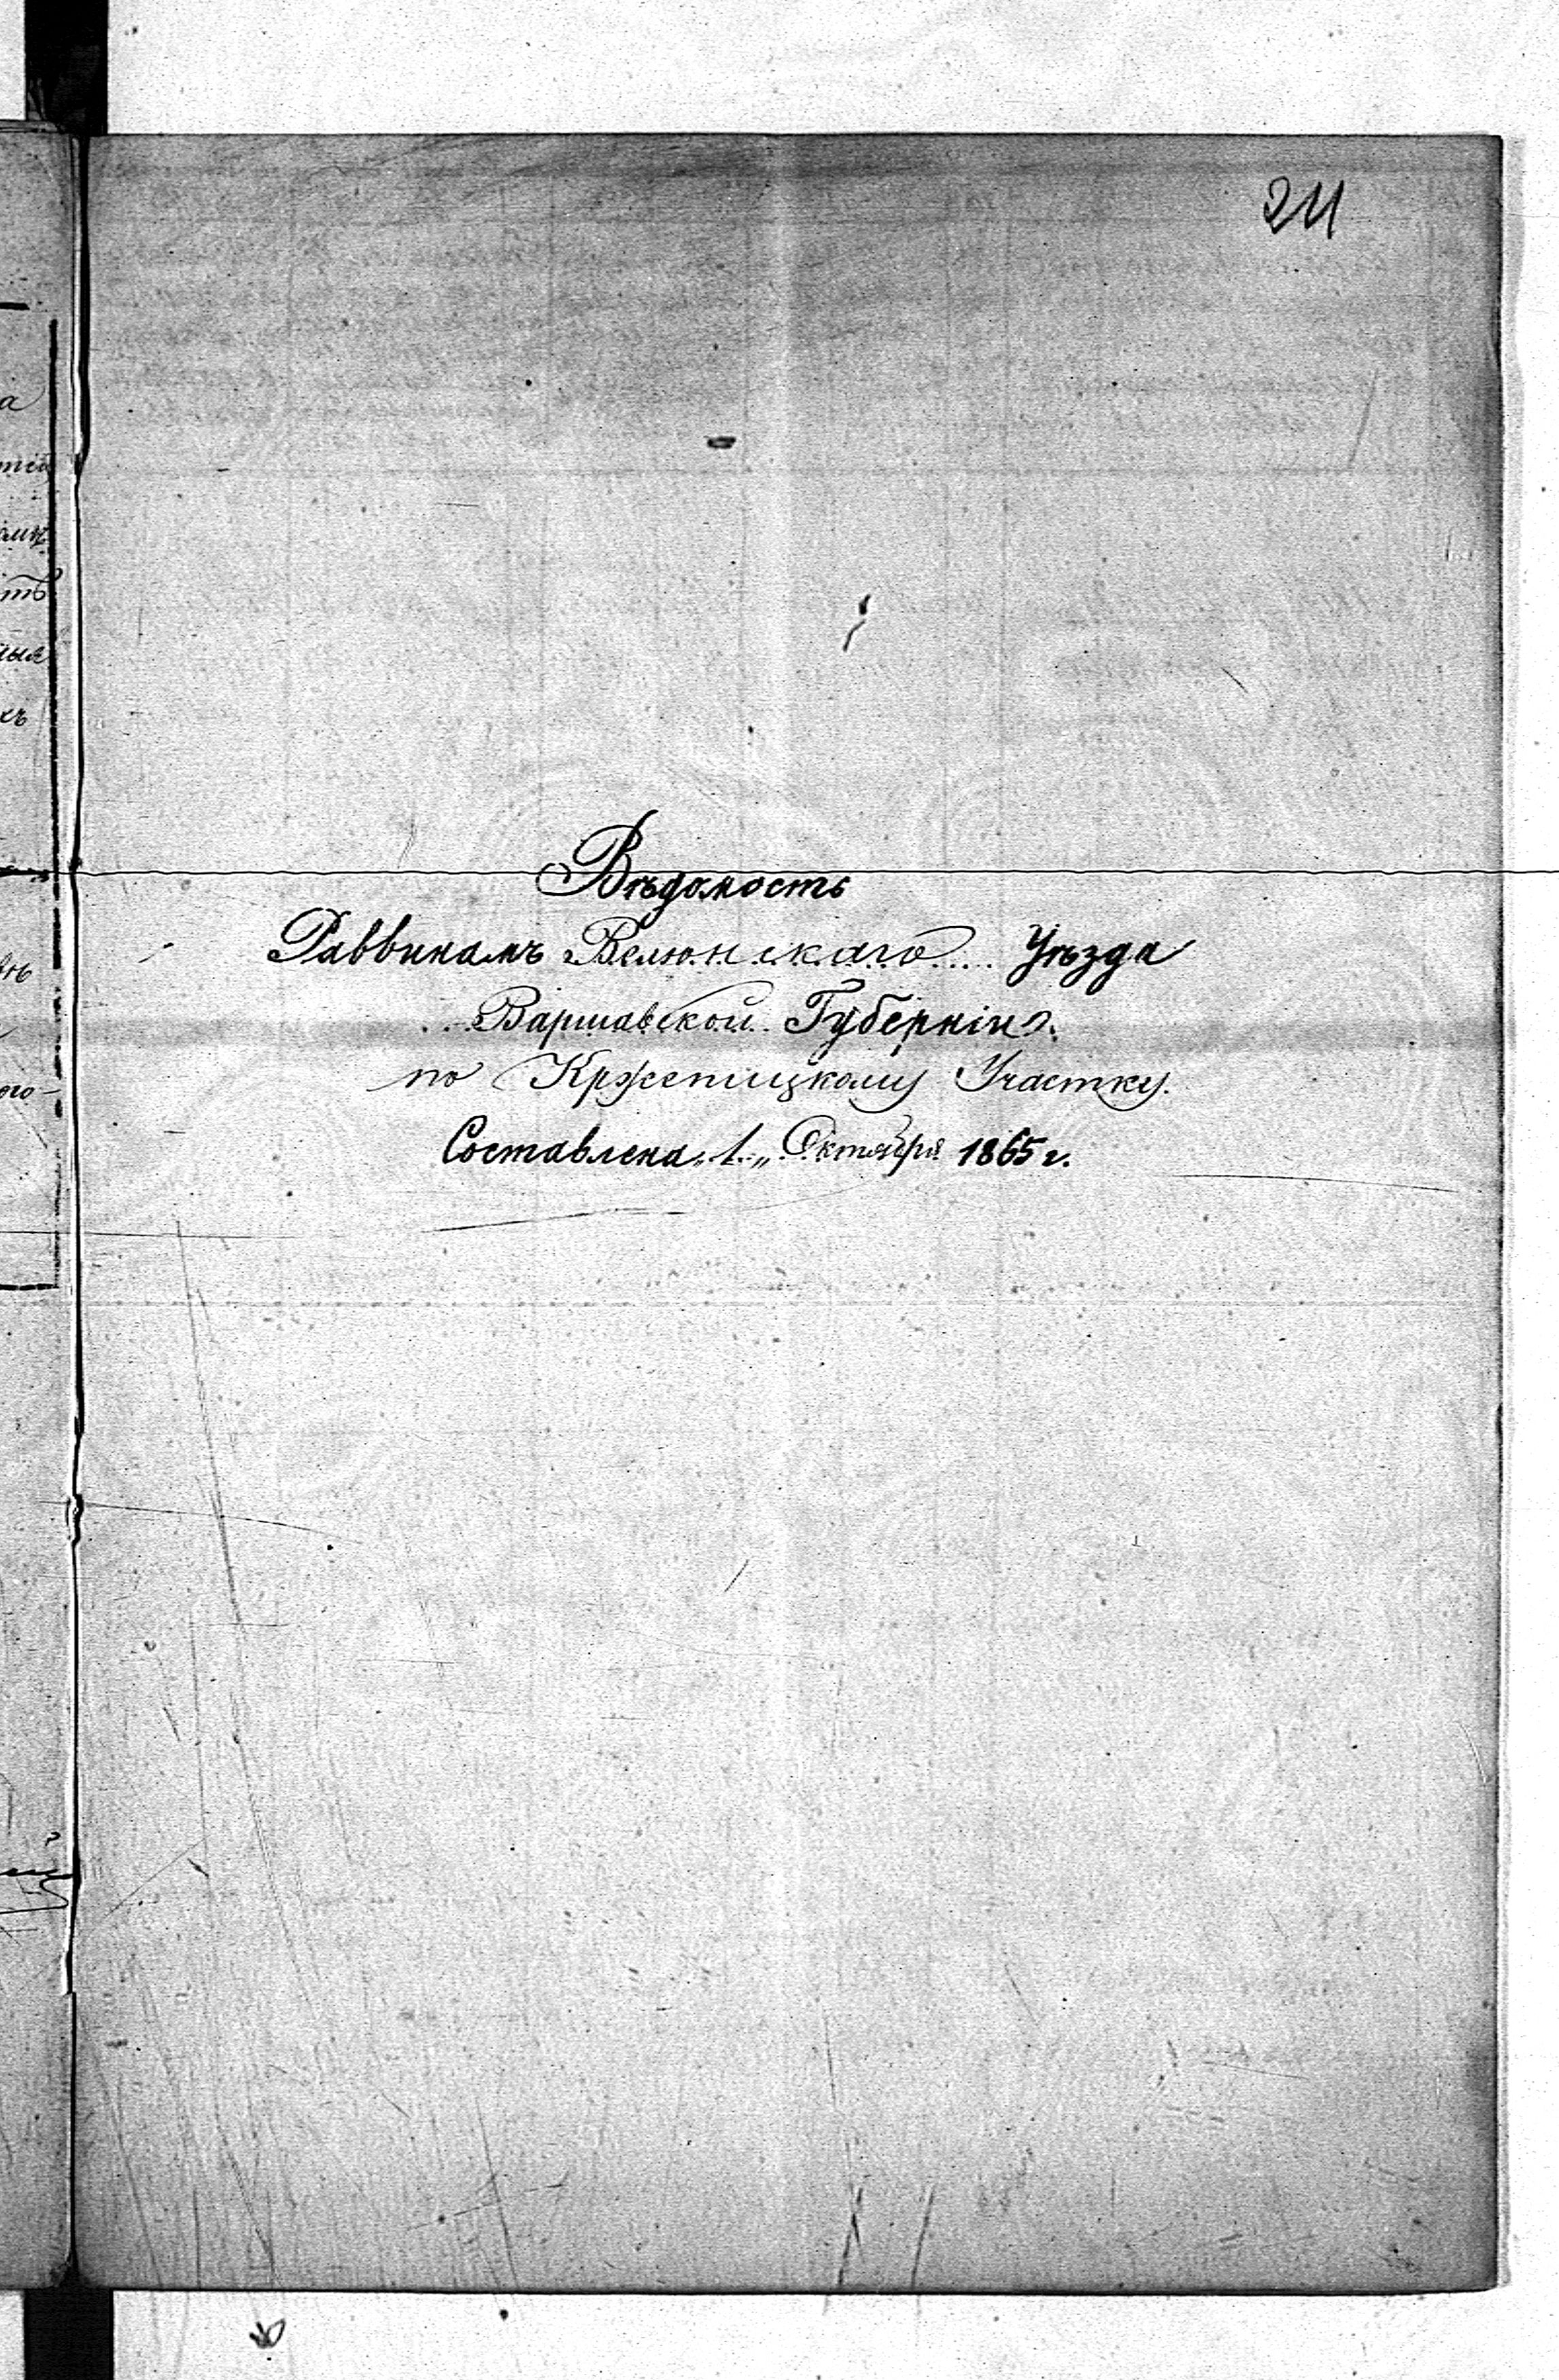 211
Вѣдомость
Раввинамъ Велюнскаго..... Уѣзда
...Варшавской.. Губерніи.
по Кржепицкому Участку.
Составлена „1.„ Октября 1865 г.
а
тей
тъ
ныя
хъ
ого-